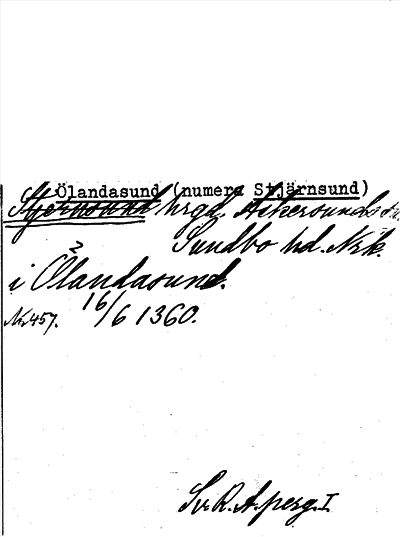 Ölandasund (numera Stjärnsund)
Stjernsund hrgd, Askersunds
Sundbo hd. Nrk.
i Ölandasund.
Nr 457. 16/6 1360.
Sv. R. A. perg. I.